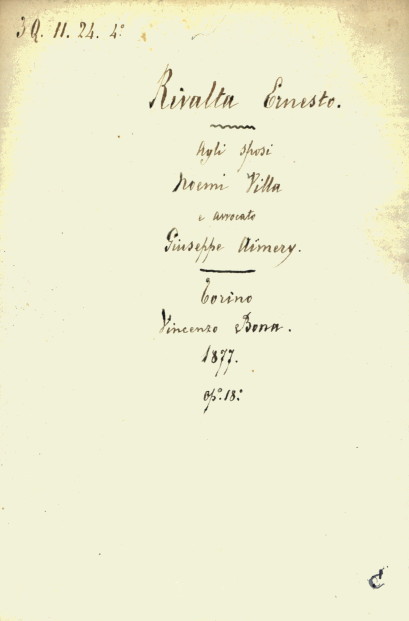 3Q. 11. 24. 4°
Rivalta Ernesto.
Agli sposi
Noemi Villa
e avvocato
Giuseppe Aimery.
Torino
Vincenzo Bona.
1877.
op°. 18°
C